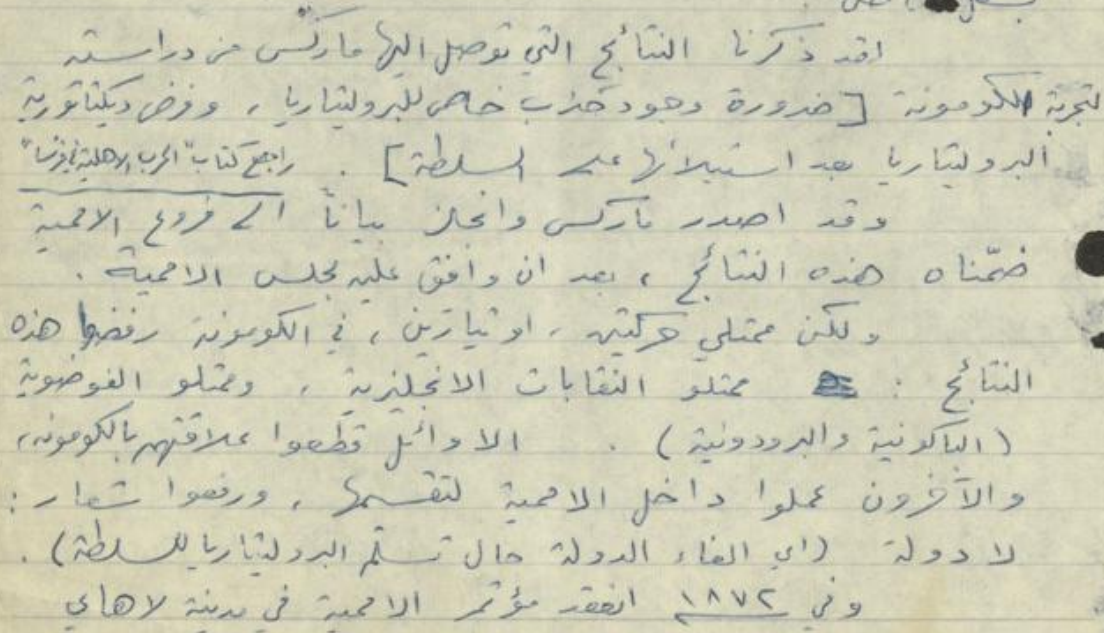 لقد ذكرنا النتائج التي توصل اليها ماركس من دراسته
لتجربة الكومونة [ضرورة وجود حزب خاص للبروليتاريا، وفرض ديكتاتورية
البروليتاريا بعد استيلائها على السلطة]. راجع كتاب "الحرب الاهلية في فرنسا"
وقد اصدر ماركس وانجلز بياناً الى فروع الاممية
ضمّناه هذه النتائج، بعد ان وافق عليه مجلس الاممية.
ولكن ممثلي حركتين، او تيارين، في الكومونة رفضوا هذه
النتائج: ممثلو النقابات الانجليزية، وممثلو الفوضوية
(الباكونية والبرودونية). الاوائل قطعوا علاقتهم بالكومونة،
والآخرون عملوا داخل الاممية لتقسيمها، ورفعوا شعار:
لا دولة (اي الغاء الدولة حال تسلّم البروليتاريا للسلطة).
وفي ١٨٧٢ انعقد مؤتمر الاممية في مدينة لاهاي